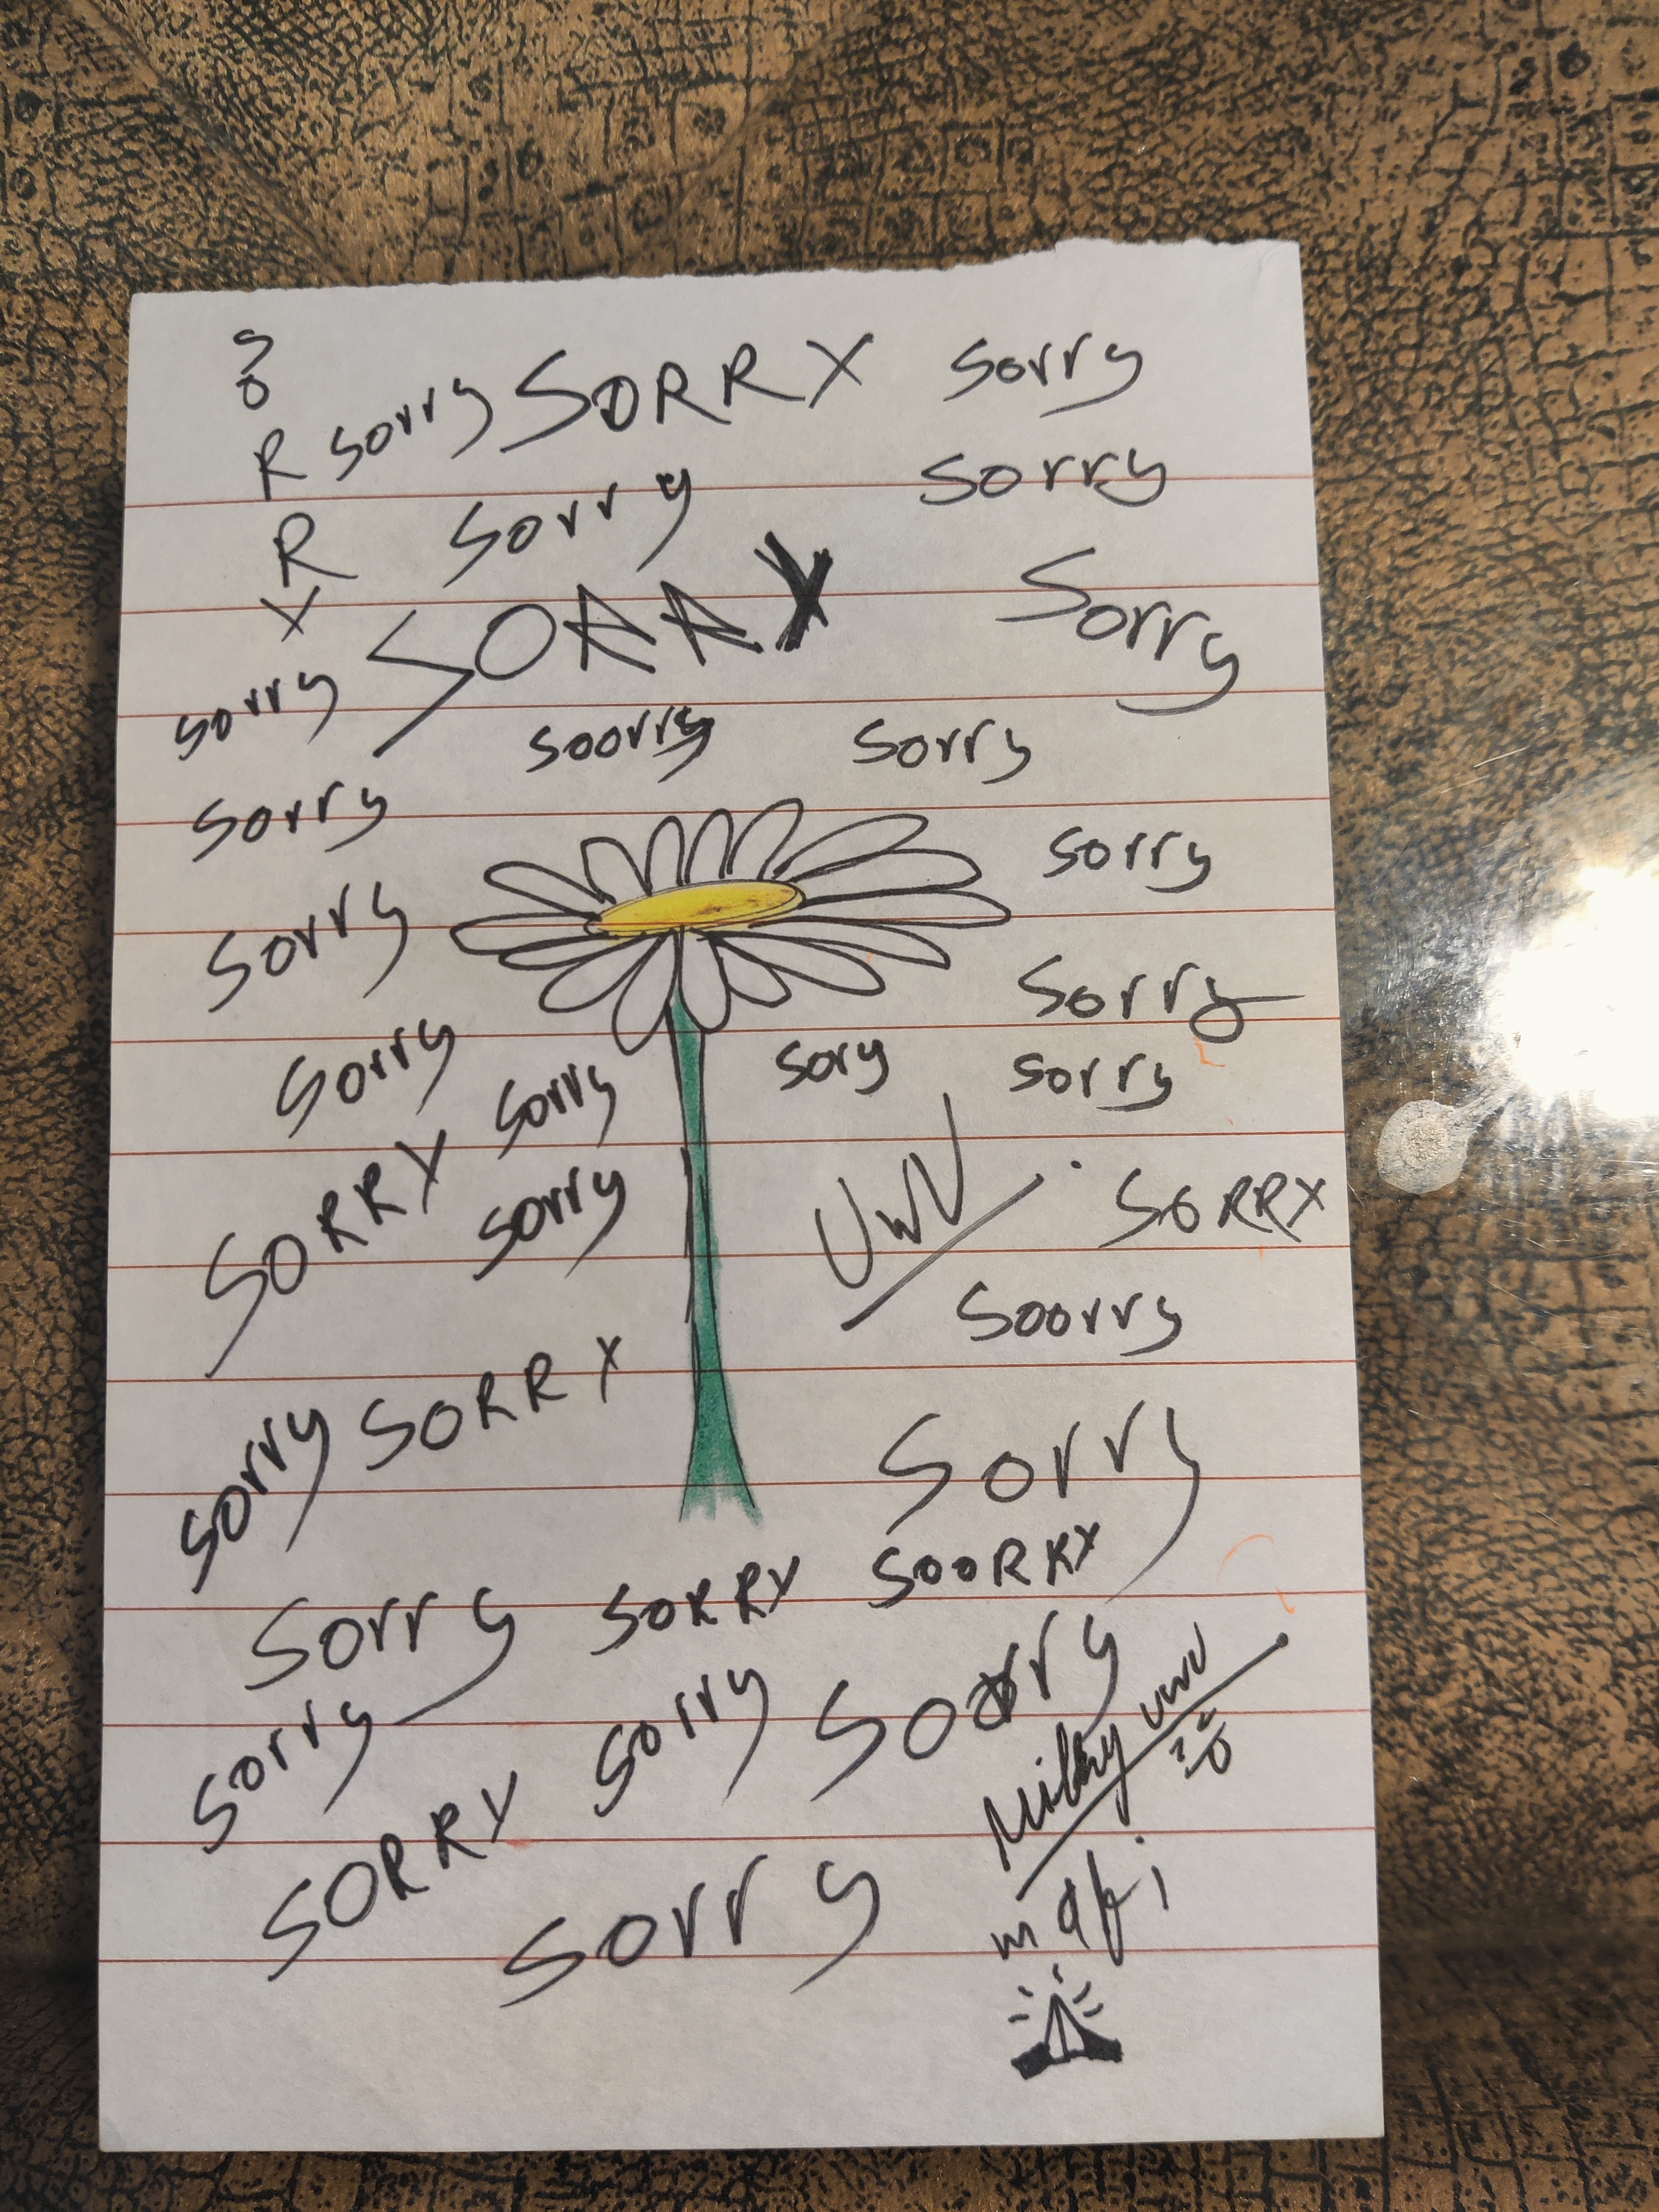 S
O
R
R
Y
sorry SORRY sorry
sorry sorry
SORRY Sorry
sorry
soorry sorry
sorry
sorry
sorry
sorry
sory sorry
sorry sorry
SORRY
sorry
UwU
SORRY
soorry
SORRY
sorry
sorry
SORRY SOORRY
sorry
sorry
sorry
sorry
SORRY
sorry
Milky UwU
mafi